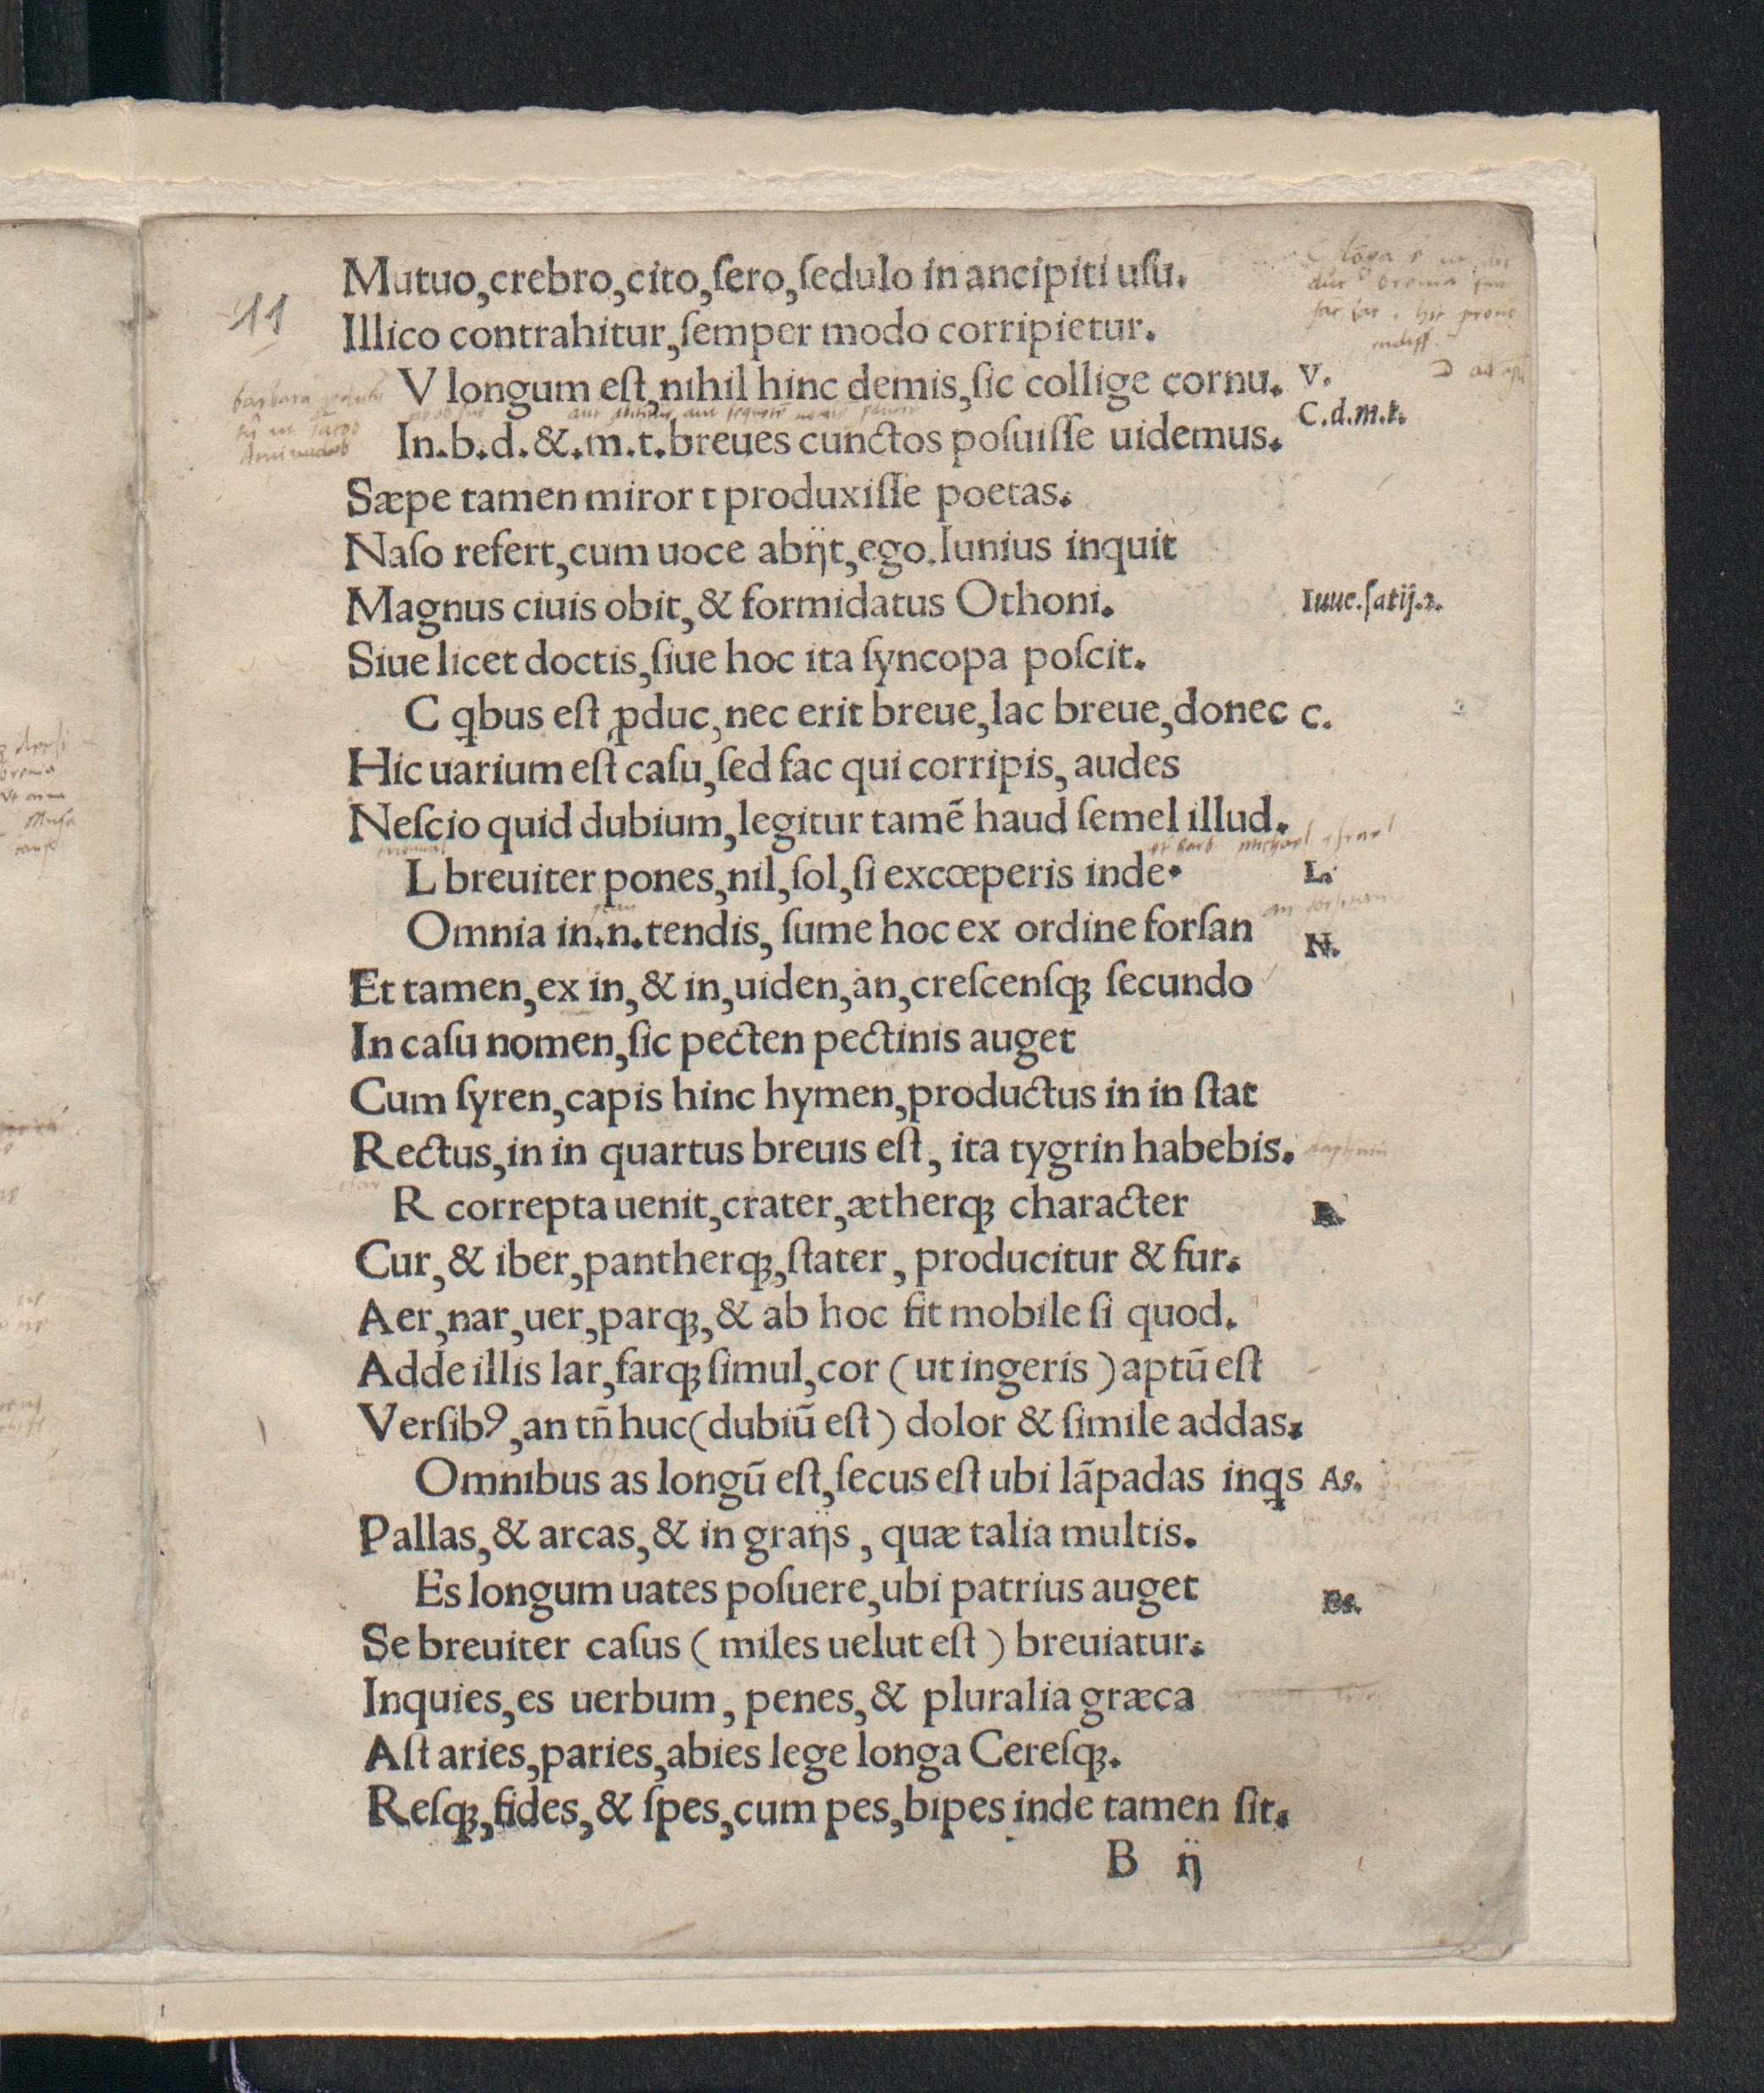 11
Mutuo,crebro,cito,ſero,ſedulo in ancipiti uſu.
Illico contrahitur,ſemper modo corripietur.
V longum eſt,nihil hinc demis,ſic collige cornu. V.
In.b.d.&.m.t.breues cunctos poſuiſſe uidemus. C.d.m.t.
Sæpe tamen miror t produxiſſe poetas.
Naſo refert,cum uoce abijt,ego.Iunius inquit
Magnus ciuis obit,& formidatus Othoni. Iuue.ſatij.2.
Siue licet doctis,ſiue hoc ita ſyncopa poſcit.
C qbus eſt ꝓduc,nec erit breue,lac breue,donec C.
Hic uarium eſt caſu,ſed fac qui corripis, audes
Neſcio quid dubium,legitur tamẽ haud ſemel illud.
L breuiter pones,nil,ſol,ſi excœperis inde. L.
Omnia in.n.tendis, ſume hoc ex ordine forſan N.
Et tamen,ex in,& in,uiden,an,creſcenſqꝫ ſecundo
In caſu nomen,ſic pecten pectinis auget
Cum ſyren,capis hinc hymen,productus in in ſtat
Rectus,in in quartus breuis eſt, ita tygrin habebis.
R correpta uenit,crater,ætherqꝫ character R.
Cur,& iber,pantherqꝫ,ſtater, producitur & fur.
Aer,nar,uer,parqꝫ,& ab hoc fit mobile ſi quod.
Adde illis lar,farqꝫ ſimul,cor (ut ingeris) aptũ eſt
Verſibꝰ,an tñ huc(dubiũ eſt) dolor & ſimile addas.
Omnibus as longũ eſt,ſecus eſt ubi lãpadas inqs As.
Pallas,& arcas,& in graijs, quæ talia multis.
Es longum uates poſuere,ubi patrius auget Es.
Se breuiter caſus (miles uelut eſt) breuiatur.
Inquies,es uerbum, penes,& pluralia græca
Aſt aries,paries,abies lege longa Cereſqꝫ.
Reſqꝫ,fides,& ſpes,cum pes,bipes inde tamen ſit.
B ij